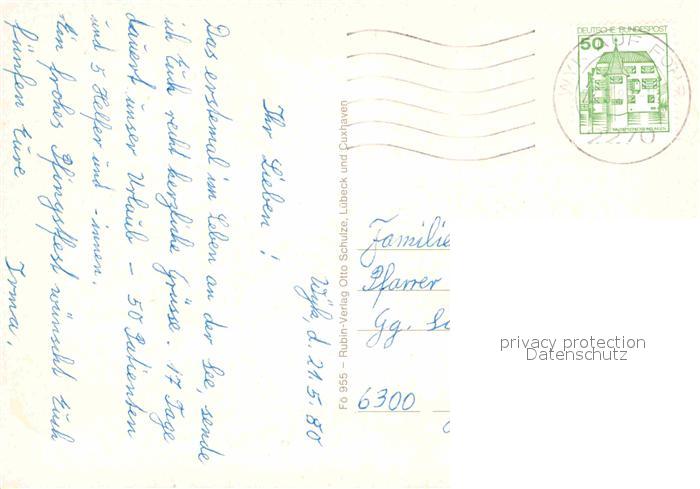 Wyk, d. 21.5.80
Ihr Lieben!
Das erstemal im Leben an der See, sende
ich Euch recht herzliche Grüsse. 17 Tage
dauert unser Urlaub - 50 Patienten
und 5 Helfer und -innen.
Ein frohes Pfingstfest wünscht Euch
fünfen Eure
Irma.
Fö 955 – Rubin-Verlag Otto Schulze, Lübeck und Cuxhaven
DEUTSCHE BUNDESPOST
50
WYK AUF FÖHR
2270
Familie
Pfarrer
Gg.
6300
privacy protection
Datenschutz